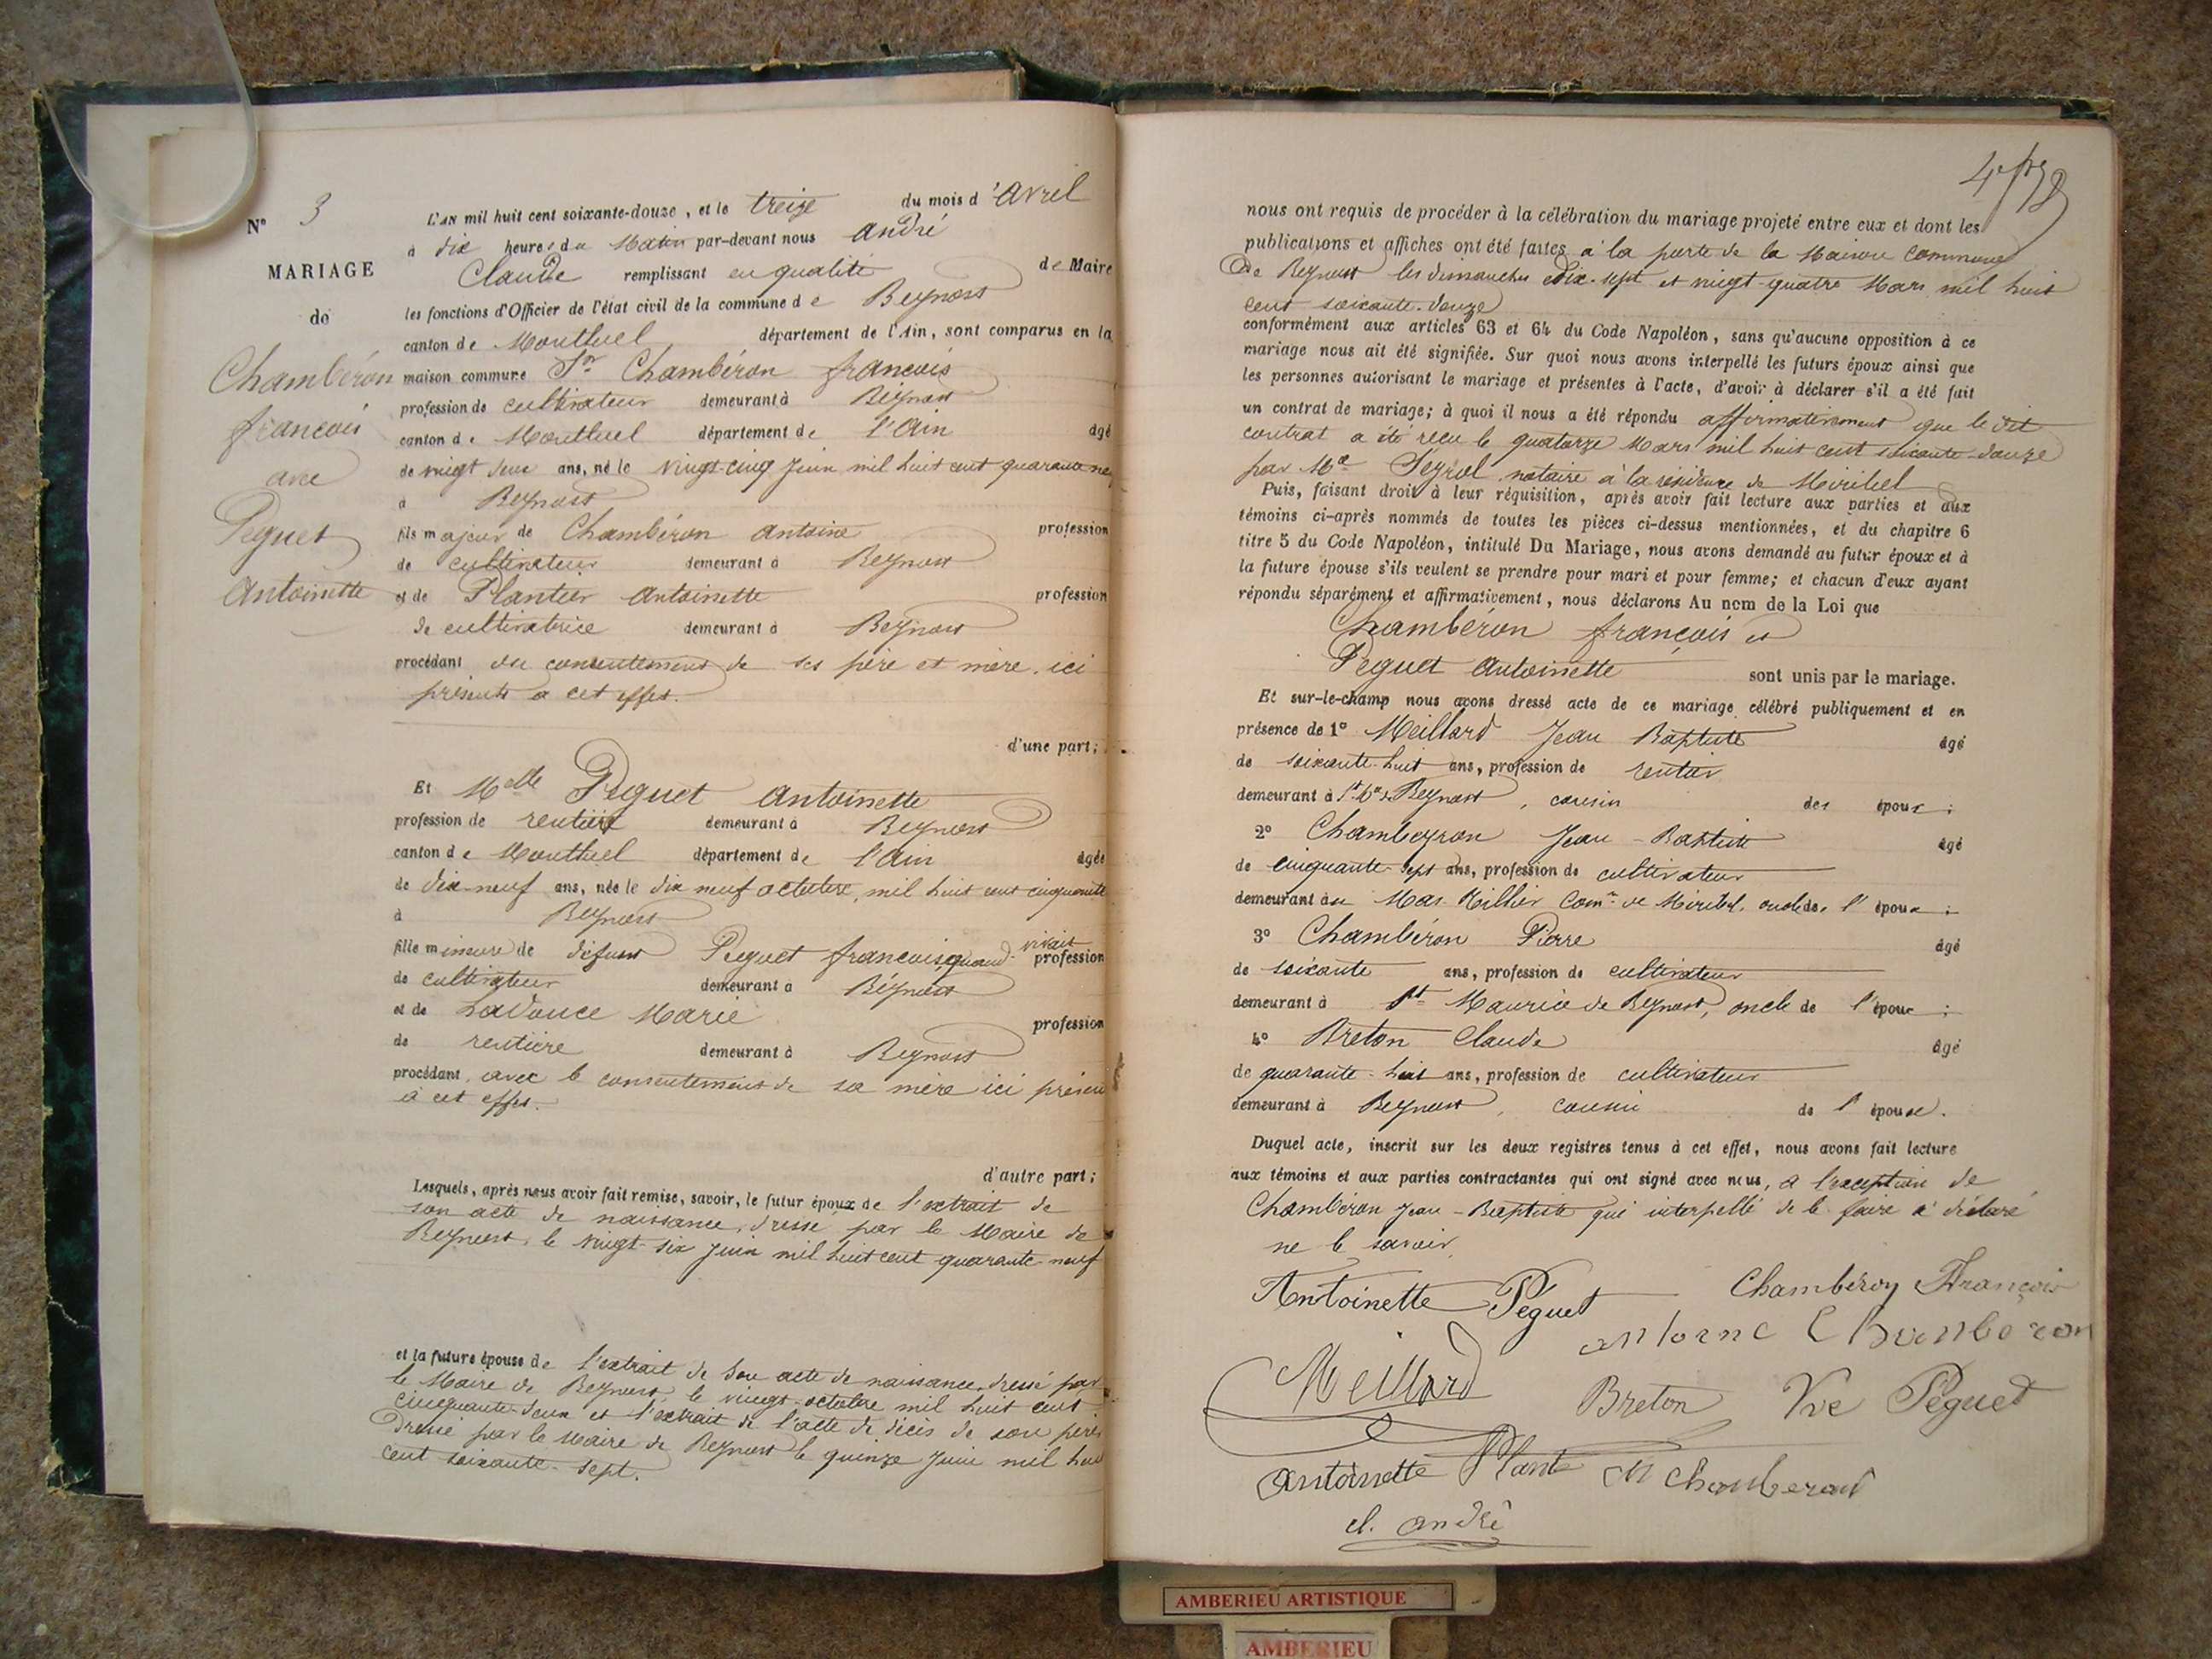 N° 3
MARIAGE
de
Chambéron
françois
avec
Peguet
Antoinette
L'AN mil huit cent soixante-douze, et le treize du mois d'Avril
à dix heures du Matin par-devant nous André
Claude remplissant en qualité de Maire
les fonctions d'Officier de l'état civil de la commune de Beynost
canton de Montluel département de l'Ain, sont comparus en la
maison commune Sr Chambéron françois
profession de cultivateur demeurant à Beynost
canton de Montluel département de l'Ain âgé
de vingt deux ans, né le vingt-cinq Juin mil huit cent quarante neuf
à Beynost
fils majeur de Chambéron Antoine profession
de cultivateur demeurant à Beynost
et de Plantier Antoinette profession
de cultivatrice demeurant à Beynost
procédant du consentement de ses père et mère ici
présents à cet effet.
d'une part;
Et Melle Peguet Antoinette
profession de rentière demeurant à Beynost
canton de Montluel département de l'Ain âgée
de dix-neuf ans, née le dix neuf octobre, mil huit cent cinquante
à Beynost
fille mineure de défunt Peguet françois, quand vivait profession
de cultivateur demeurant à Béynost
et de Ladouce Marie profession
de rentière demeurant à Beynost
procédant avec le consentement de sa mère ici présen
à cet effet.
d'autre part;
Lesquels, après nous avoir fait remise, savoir, le futur époux de l'extrait de
son acte de naissance, dressé par le Maire de
Beynost, le vingt-six Juin mil huit cent quarante-neuf
et la future épouse de l'extrait de son acte de naissance dressé par
le Maire de Beynost le vingt octobre mil huit cent
cinquante-deux et l'extrait de l'acte de décès de son père
Dressé par le Maire de Beynost le quinze Juin mil huit
cent soixante-sept.
nous ont requis de procéder à la célébration du mariage projeté entre eux et dont les
publications et affiches ont été faites à la porte de la Maison Commune
De Beynost les dimanches dix-sept et vingt-quatre Mars mil huit
cent soixante-douze
conformément aux articles 63 et 64 du Code Napoléon, sans qu'aucune opposition à ce
mariage nous ait été signifiée. Sur quoi nous avons interpellé les futurs époux ainsi que
les personnes autorisant le mariage et présentes à l'acte, d'avoir à déclarer s'il a été fait
un contrat de mariage; à quoi il nous a été répondu affirmativement que le dit
contrat a été reçu le quatorze Mars mil huit cent soixante-douze
par Me notaire à la résidence de Miribel
Puis, faisant droit à leur réquisition, après avoir fait lecture aux parties et aux
témoins ci-après nommés de toutes les pièces ci-dessus mentionnées, et du chapitre 6
titre 5 du Code Napoléon, intitulé Du Mariage, nous avons demandé au futur époux et à
la future épouse s'ils veulent se prendre pour mari et pour femme; et chacun d'eux ayant
répondu séparément et affirmativement, nous déclarons Au nom de la Loi que
Chambéron françois et
Peguet Antoinette sont unis par le mariage.
Et sur-le-champ nous avons dressé acte de ce mariage célébré publiquement et en
présence de 1° Meillard Jean Baptiste âgé
de soixante-huit ans, profession de rentier
demeurant à St Mce de Beynost, cousin des époux;
2° Chambeyron Jean-Baptiste âgé
de cinquante-sept ans, profession de cultivateur
demeurant au Mas Rillier Comne de Miribel, oncle de l'époux;
3° Chambéron Pierre âgé
de soixante ans, profession de cultivateur
demeurant à St Maurice de Beynost, oncle de l'époux;
4° Breton Claude âgé
de quarante-huit ans, profession de cultivateur
demeurant à Beynost, cousin de l'épouse.
Duquel acte, inscrit sur les deux registres tenus à cet effet, nous avons fait lecture
aux témoins et aux parties contractantes qui ont signé avec nous, à l'exception de
Chambéron Jean-Baptiste qui interpellé de le faire a déclaré
ne le savoir
Antoinette Péguet Chambéron François
antoine Chamberon
Meillard Breton Vve Péguet
Antoinette Plant Chamberon
cl. andré
AMBERIEU ARTISTIQUE
AMBERIEU